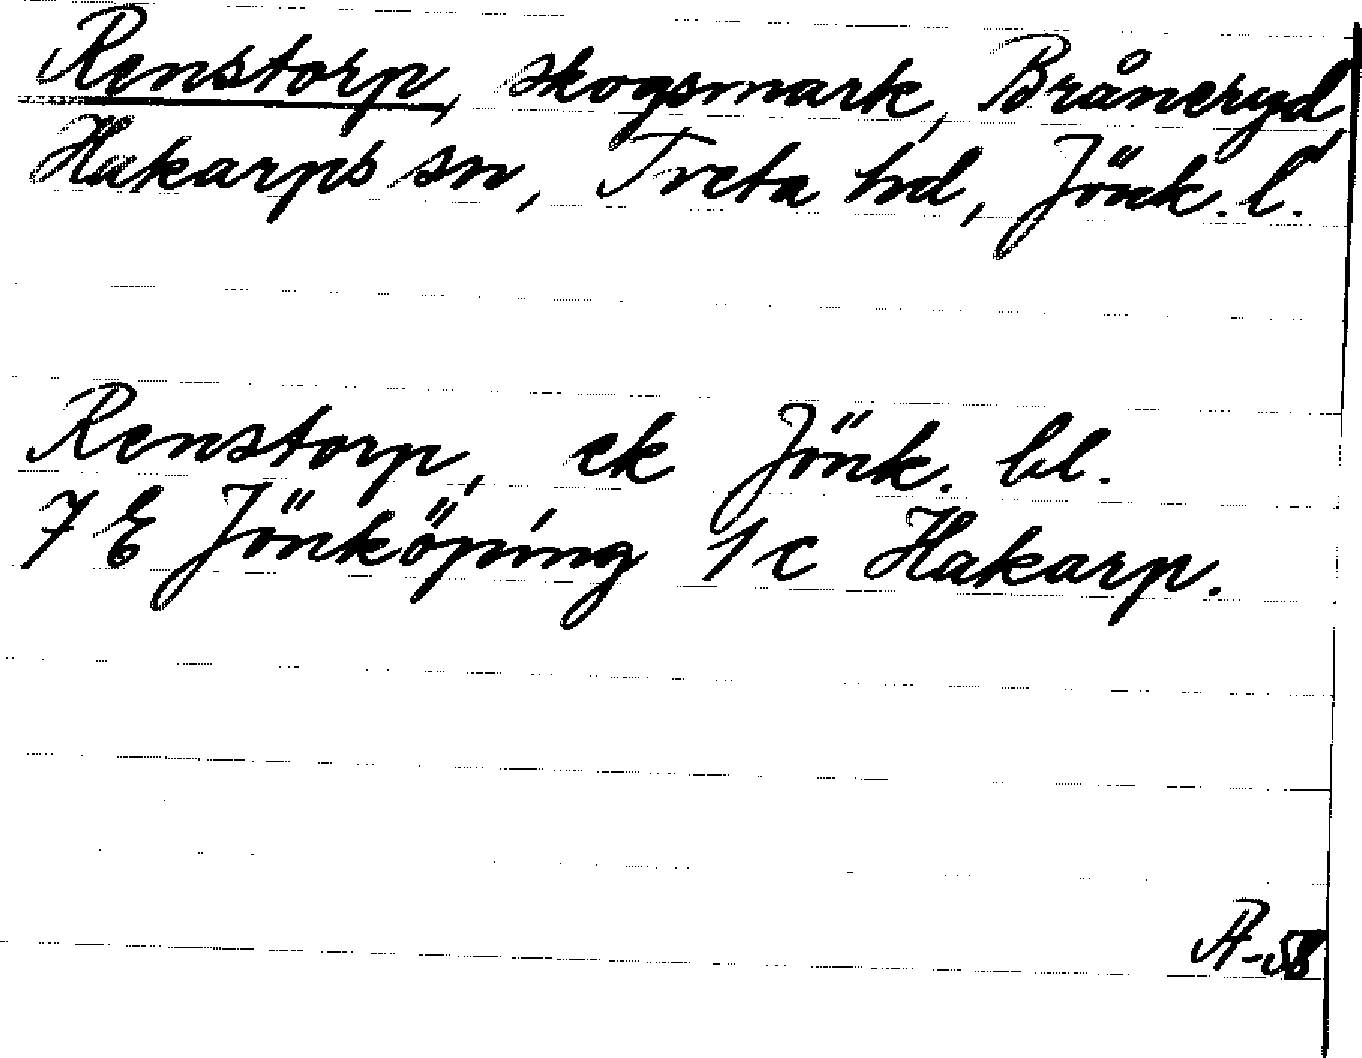 Renstorp, skogsmark, Bråneryd,
Hakarps sn, Tveta hd, Jönk. l.
Renstorp, ek Jönk. bl.
7 E Jönköping 1 c Hakarp.
A-58